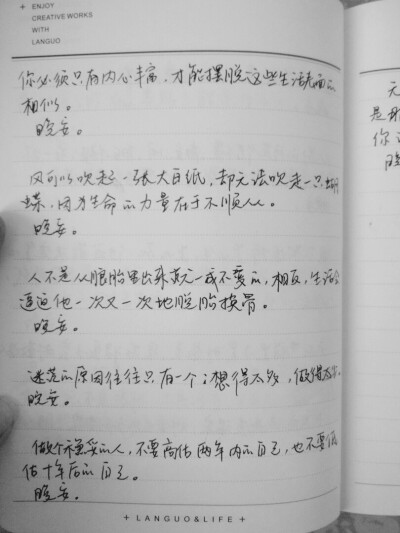 ENJOY
CREATIVE WORKS
WITH
LANGUO
你必须只有内心丰富，才能摆脱这些生活表面的
相似。
晚安。
风可以吹起一张大白纸，却无法吹走一只蝴
蝶，因为生命的力量在于不顺从。
晚安。
人不是从娘胎里出来就一成不变的，相反，生活会
逼迫他一次又一次地脱胎换骨。
晚安。
迷茫的原因往往只有一个；想得太多，做得太少。
晚安。
做个稳妥的人，不要高估两年内的自己，也不要低
估十年后的自己。
晚安。
LANGUO&LIFE
无
是
你
晚